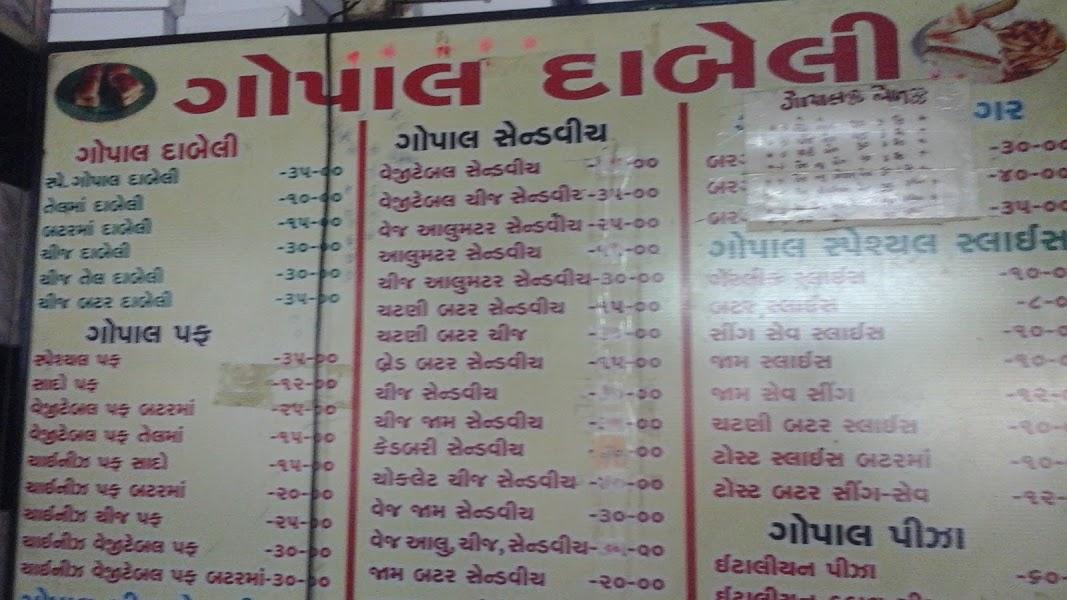 ગોપાલ દાબેલી
ગોપાલ દાબેલી
સ્પે. ગોપાલ દાબેલી -૩૫-૦૦
તેલમાં દાબેલી -૧૦-૦૦
બટરમાં દાબેલી -૧૫-૦૦
ચીજ દાબેલી -૩૦-૦૦
ચીજ તેલ દાબેલી -૩૦-૦૦
ચીજ બટર દાબેલી -૩૫-૦૦
ગોપાલ પફ
સ્પેશ્યલ પફ -૩૫-૦૦
સાદો પફ -૧૨-૦૦
વેજીટેબલ પફ બટરમાં -૨૫-૦૦
વેજીટેબલ પફ તેલમાં -૧૫-૦૦
ચાઈનીઝ પફ સાદો -૧૫-૦૦
ચાઈનીઝ પફ બટરમાં -૨૦-૦૦
ચાઈનીઝ ચીજ પફ -૨૫-૦૦
ચાઈનીઝ વેજીટેબલ પફ -૩૦-૦૦
ચાઈનીઝ વેજીટેબલ પફ બટરમાં-૩૦-૦૦
ગોપાલ સેન્ડવીચ
વેજીટેબલ સેન્ડવીચ
વેજીટેબલ ચીજ સેન્ડવીર -૩૫-૦૦
વેજ આલુમટર સેન્ડવીચ -૨૫-૦૦
આલુમટર સેન્ડવીચ
ચીજ આલુમટર સેન્ડવીચ-૩૦-૦૦
ચટણી બટર સેન્ડવીચ -૧૫-૦૦
ચટણી બટર ચીજ
બ્રેડ બટર સેન્ડવીચ -૧૫-૦૦
ચીજ સેન્ડવીચ
ચીજ જામ સેન્ડવીચ
કેડબરી સેન્ડવીચ
ચોકલેટ ચીજ સેન્ડવીચ
વેજ જામ સેન્ડવીચ -૩૦-૦૦
વેજ આલુ, ચીજ, સેન્ડવીચ-
જામ બટર સેન્ડવીચ -૨૦-૦૦
ગર
બર -૩૦-૦૦
બર -૪૦-૦૦
બર -૩૫-૦૦
ગોપાલ સ્પેશ્યલ સ્લાઈસ
ગાર્લીક સ્લાઈસ -૧૦-૦
બટર સ્લાઈસ -૮-૦
સીંગ સેવ સ્લાઈસ -૧૦-૦
જામ સ્લાઈસ -૧૦-૦
જામ સેવ સીંગ -૧૨-૦
ચટણી બટર સ્લાઈસ -૧૦-
ટોસ્ટ સ્લાઈસ બટરમાં -૧૦-
ટોસ્ટ બટર સીંગ-સેવ -૧૨-
ગોપાલ પીઝા
ઈટાલીયન પીઝા -૬૦-